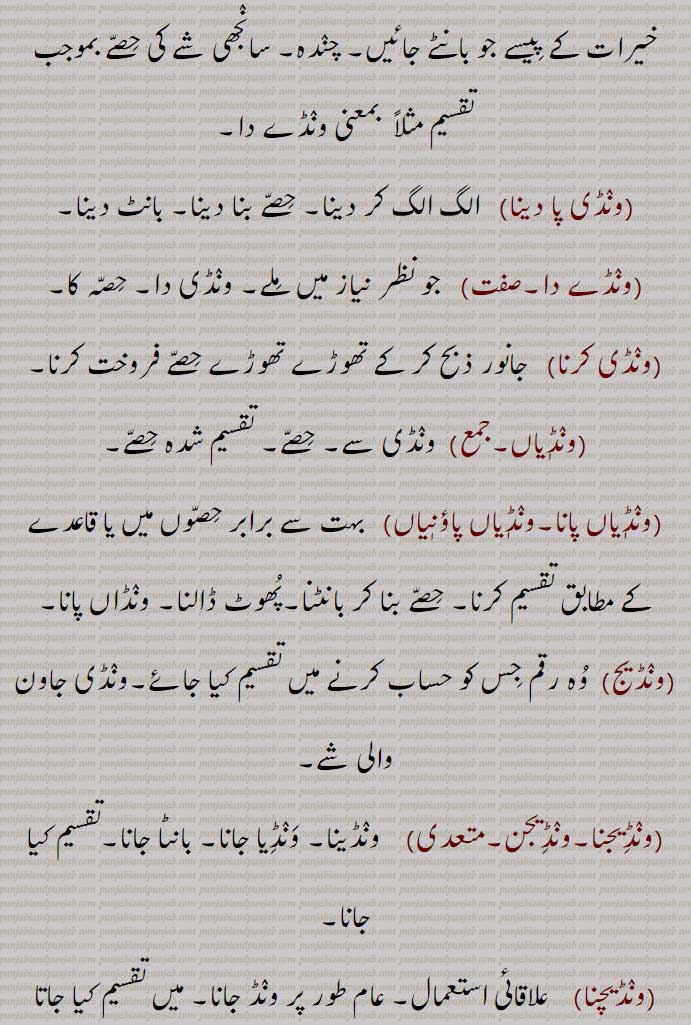 خیرات کے پیسے جو بانٹے جائیں۔ چندہ۔ سانجھی شے کی حِصّے بموجب
تقسیم مثلاً بمعنی ونڈے دا۔
(ونڈی پا دینا) الگ الگ کر دینا۔ حِصّے بنا دینا۔ بانٹ دینا۔
(ونڈے دا۔صفت) جو نظر نیاز میں مِلے۔ ونڈی دا۔ حِصّہ کا۔
(ونڈی کرنا) جانور ذبح کر کے تھوڑے تھوڑے حِصّے فروخت کرنا۔
(ونڈیاں۔جمع) ونڈی سے۔ حِصّے۔ تقسیم شدہ حِصّے۔
(ونڈیاں پانا۔ونڈیاں پاؤنیاں) بہت سے برابر حِصّوں میں یا قاعدے
کے مطابق تقسیم کرنا۔ حِصّے بنا کر بانٹنا۔پُھوٹ ڈالنا۔ ونڈاں پانا۔
(ونڈیج) وُہ رقم جِس کو حساب کرنے میں تقسیم کیا جائے۔ونڈی جاون
والی شے۔
(ونڈِیجنا۔ونڈِیجن۔متعدی) ونڈینا۔ وَنڈِیا جانا۔ بانٹا جانا۔تقسیم کیا
جانا۔
(ونڈیچنا) علاقائی استعمال۔ عام طور پر ونڈ جانا۔ میں تقسیم کیا جاتا